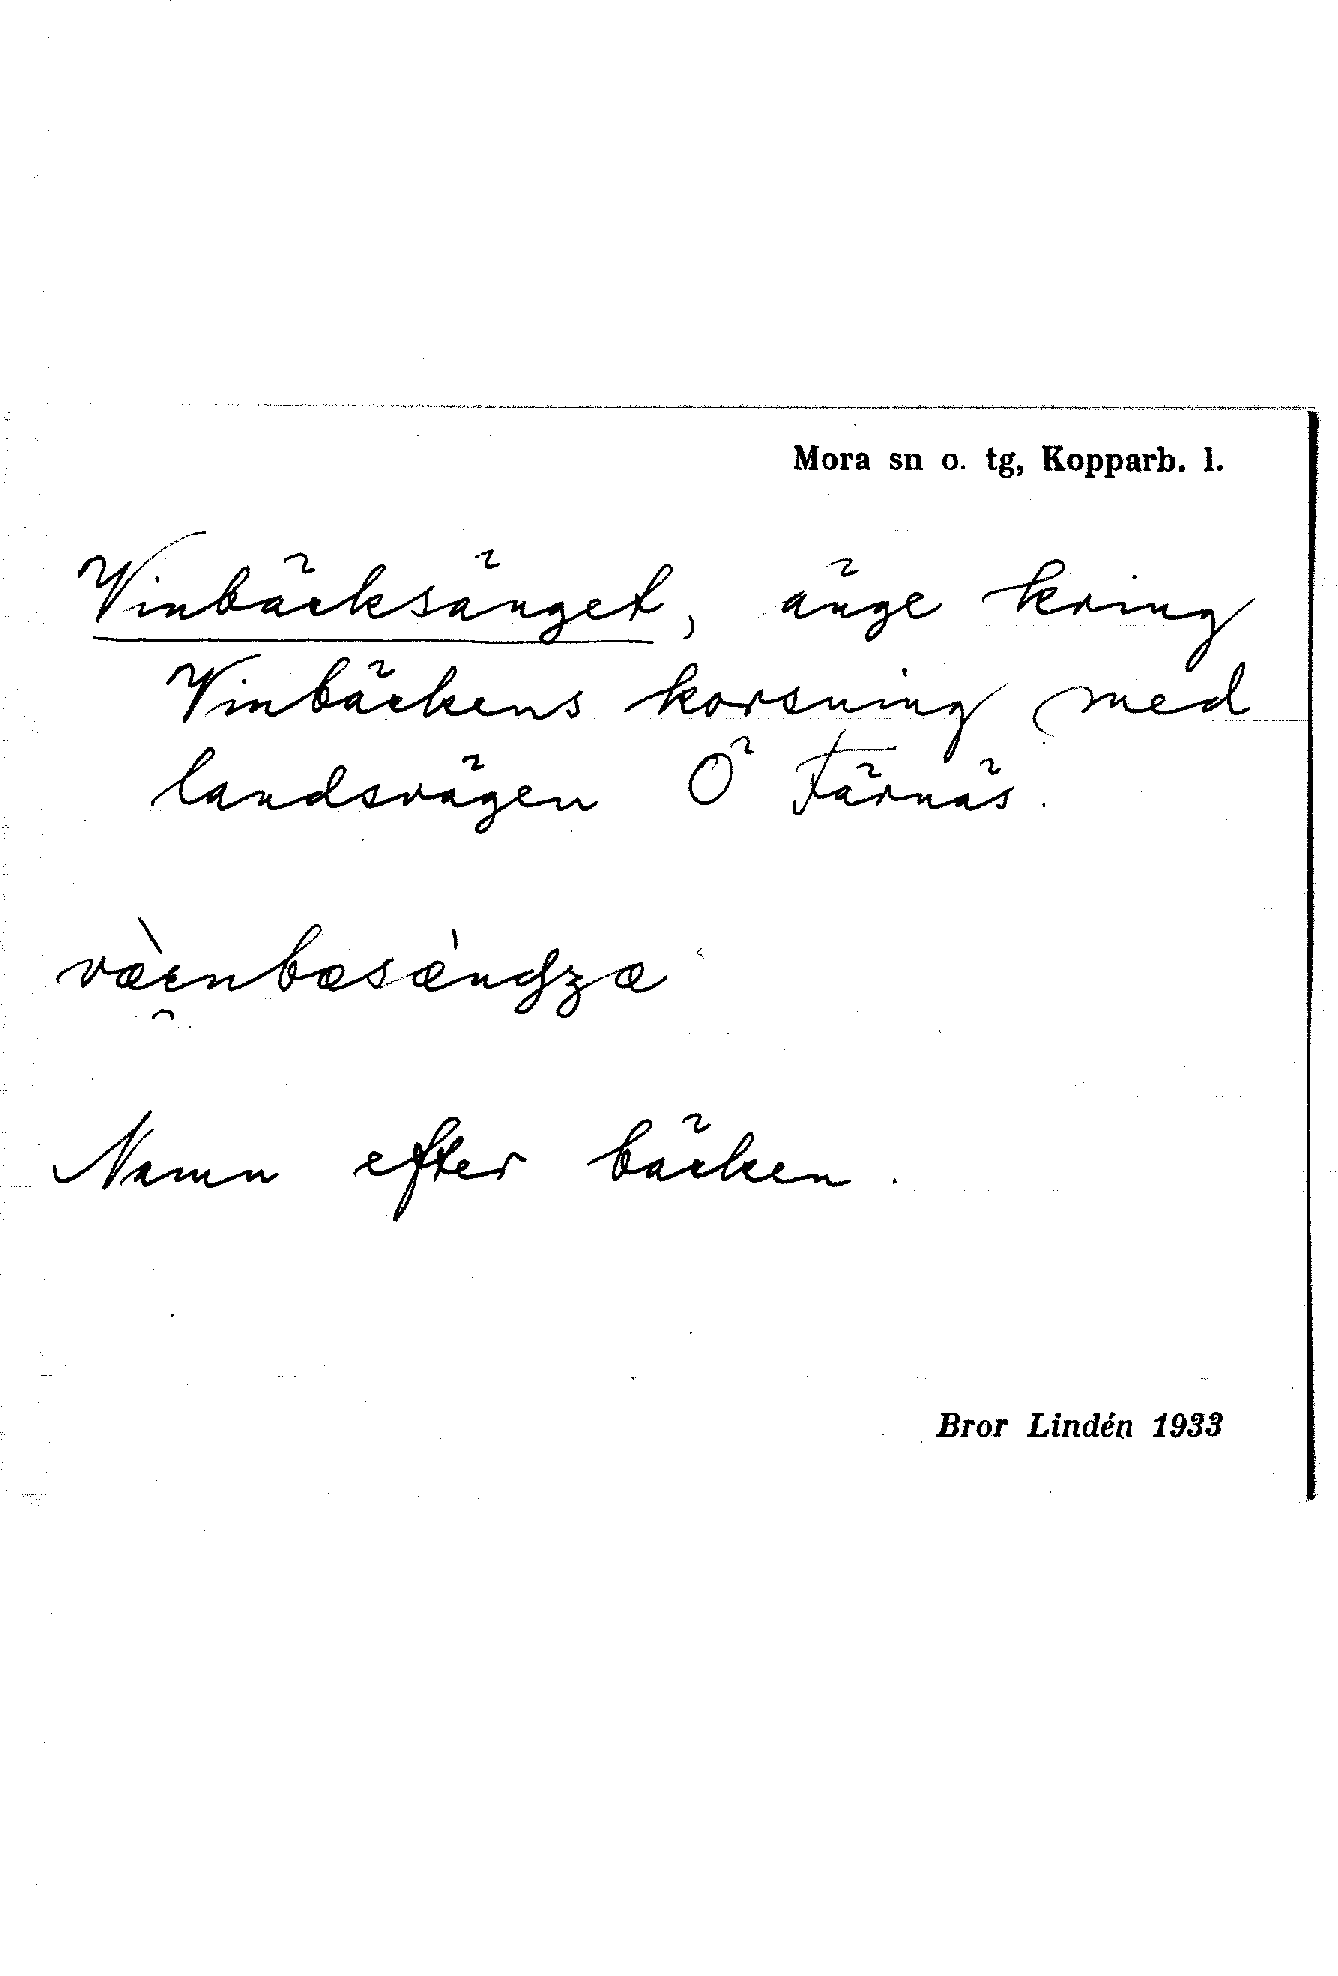 Mora sn o. tg, Kopparb. l.
Vinbäcksänget, änge kring
Vinbäckens korsning med
landsvägen Ö Färnäs.
væ̀ɪnbæsæ̀ndʒæ
Namn efter bäcken.
Bror Lindén 1933